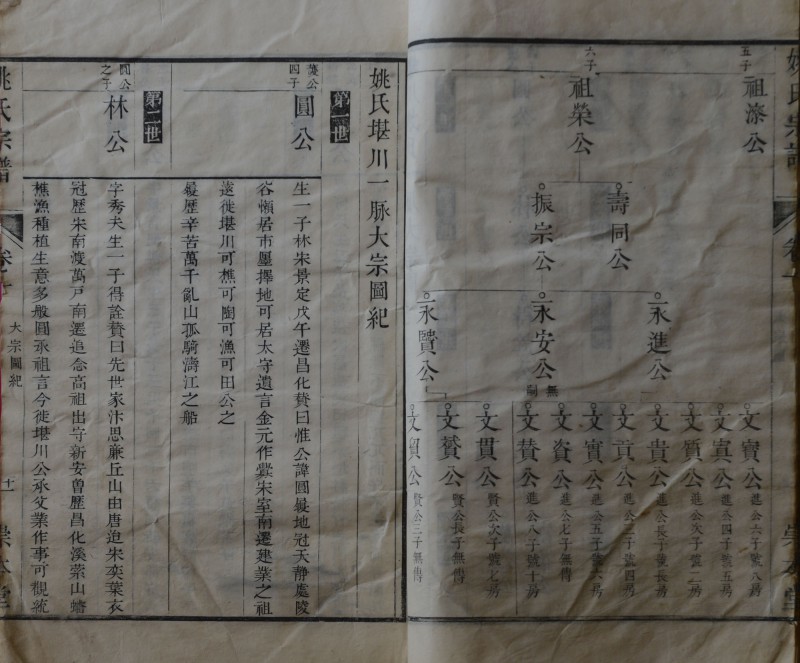 姚氏宗譜
卷一
崇本堂
五子
祖滌公
六子
祖榮公
壽同公
振宗公
永進公
永安公
無
嗣
永賢公
文寶公
進公六子號八房
文寘公
進公四子號五房
文質公
進公次子號二房
文貴公
進公長子號長房
文貢公
進公三子號四房
文寶公
進公五子號六房
文資公
進公七子無傳
文贊公
進公八子號十房
文貫公
賢公次子號七房
文贇公
賢公長子無傳
文貿公
賢公三子無傳
姚氏堪川一脉大宗圖紀
第一世
護公
四子
圓公
生一子林朱景定戊午遷昌化賛曰惟公諱圓最地冠天靜處陵
谷懶居市廛擇地可居太守遺言金元作雲朱室南遷建業之祖
遠徙堪川可樵可陶可漁可田公之
最歴辛苦萬千亂山孤騎濤江之船
第二世
圓公
之子
林公
字秀夫生一子得詮賛曰先世家汴思廉丘山由唐迨朱奕葉衣
冠歴朱南渡萬戸南遷追念高祖出守新安曽歴昌化溪縈山蟠
樵漁種植生意多般圓承祖言今徙堪川公承父業作事可觀統
姚氏宗譜
卷一
大宗圖紀
十一
崇本堂